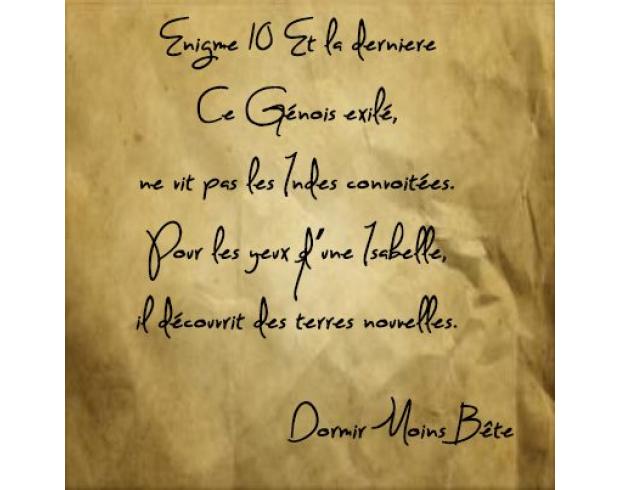 Enigme 10 Et la derniere
Ce Génois exilé,
ne vit pas les Indes convoitées.
Pour les yeux d'une Isabelle,
il découvrit des terres nouvelles.
Dormir Moins Bête